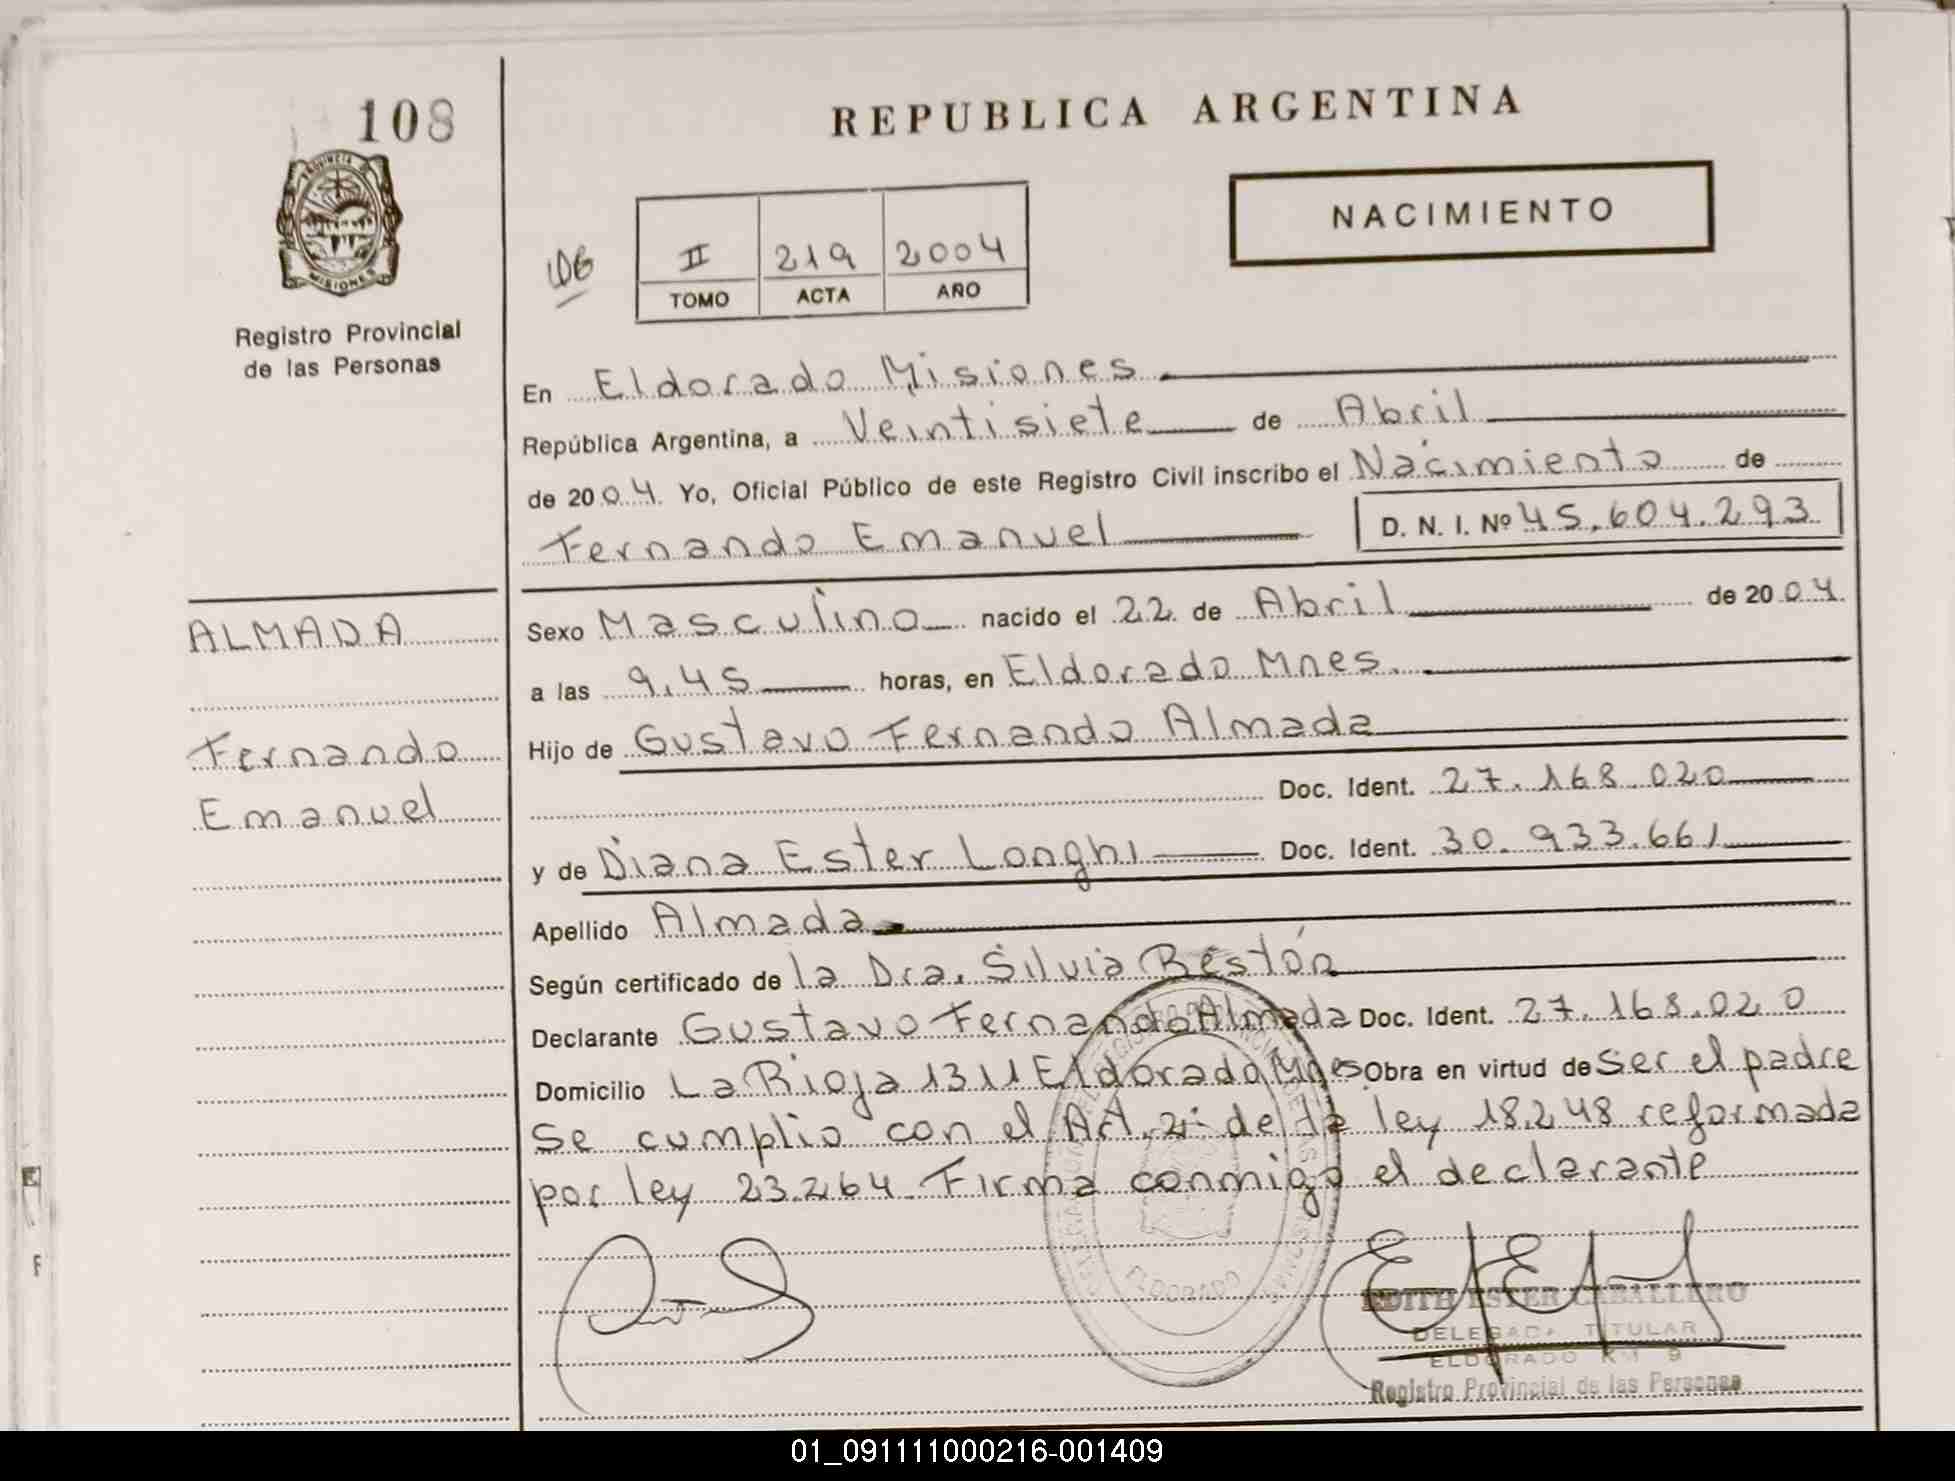 108
REPUBLICA ARGENTINA
PROVINCIA DE
MISIONES
Registro Provincial
de las Personas
NACIMIENTO
II 219 2004
TOMO ACTA AÑO
En Eldorado Misiones
República Argentina, a Veintisiete de Abril
de 2004. Yo, Oficial Público de este Registro Civil inscribo el Nacimiento de
Fernando Emanuel D. N. I. Nº 45.604.293
ALMADA
Fernando
Emanuel
Sexo Masculino nacido el 22 de Abril de 2004
a las 9.45 horas, en Eldorado Mnes.
Hijo de Gustavo Fernando Almada
Doc. Ident. 27.168.020
y de Diana Ester Longhi Doc. Ident. 30.933.661
Apellido Almada
Según certificado de la Dra. Silvia Bestón
Declarante Gustavo Fernando Almada Doc. Ident. 27.168.020
Domicilio La Rioja 1311 Eldorado Mnes Obra en virtud de ser el padre
Se cumplio con el Art. 2: de la ley 18.248 reformada
por ley 23.264. Firma conmigo el declarante
ELDORADO
EDITH ESTER CABALLERO
DELEGADA TITULAR
ELDORADO KM 9
Registro Provincial de las Personas
01_091111000216-001409